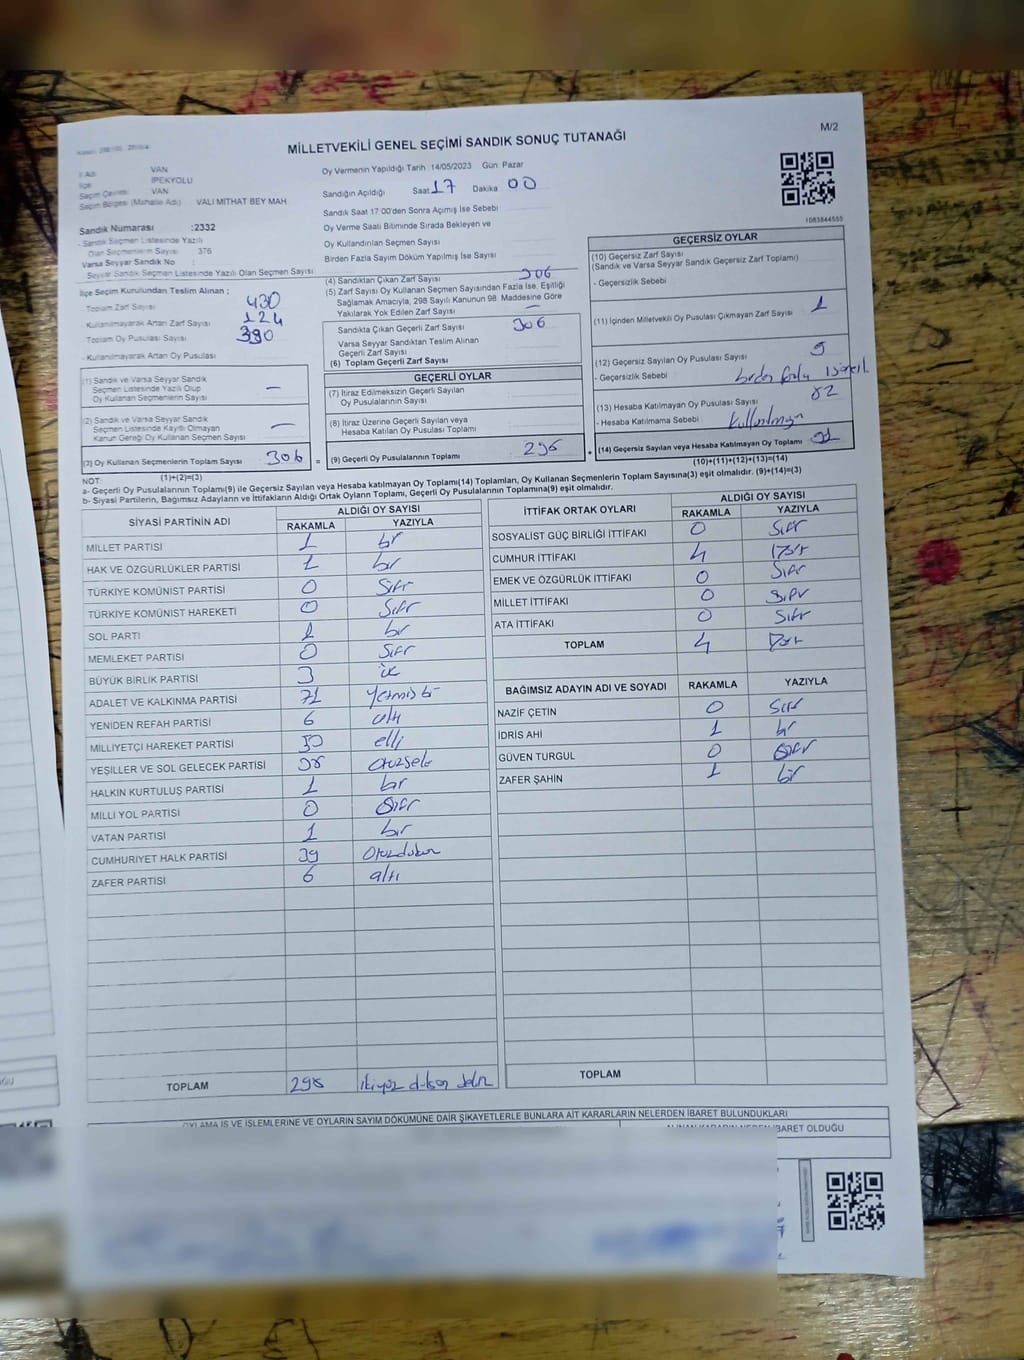 MİLLETVEKİLİ GENEL SEÇİMİ SANDIK SONUÇ TUTANAĞI
M/2
İl Adı VAN
İlçe İPEKYOLU
Seçim Çevresi VAN
Seçim Bölgesi (Mahalle Adı) VALI MİTHAT BEY MAH
Sandık Numarası :2332
- Sandık Seçmen Listesinde Yazılı
Olan Seçmenlerin Sayısı 376
Varsa Seyyar Sandık No :
- Seyyar Sandık Seçmen Listesinde Yazılı Olan Seçmen Sayısı
Oy Vermenin Yapıldığı Tarih :14/05/2023 Gün: Pazar
Sandığın Açıldığı Saat 17 Dakika 00
Sandık Saat 17:00'den Sonra Açımış İse Sebebi
Oy Verme Saati Bitiminde Sırada Bekleyen ve
Oy Kullandırılan Seçmen Sayısı
Birden Fazla Sayım Döküm Yapılmış İse Sayısı
1083844555
İlçe Seçim Kurulundan Teslim Alınan ;
Toplam Zarf Sayısı 430
Kullanılmayarak Artan Zarf Sayısı 124
Toplam Oy Pusulası Sayısı 390
- Kullanılmayarak Artan Oy Pusulası
(1) Sandık ve Varsa Seyyar Sandık
Seçmen Listesinde Yazılı Olup
Oy Kullanan Seçmenlerin Sayısı —
(2) Sandık ve Varsa Seyyar Sandık
Seçmen Listesinde Kayıtlı Olmayan
Kanun Gereği Oy Kullanan Seçmen Sayısı —
(3) Oy Kullanan Seçmenlerin Toplam Sayısı 306
(1)+(2)=(3)
(4) Sandıktan Çıkan Zarf Sayısı 306
(5) Zarf Sayısı Oy Kullanan Seçmen Sayısından Fazla İse, Eşitliği
Sağlamak Amacıyla, 298 Sayılı Kanunun 98. Maddesine Göre
Yakılarak Yok Edilen Zarf Sayısı —
Sandıkta Çıkan Geçerli Zarf Sayısı 306
Varsa Seyyar Sandıktan Teslim Alınan
Geçerli Zarf Sayısı
(6) Toplam Geçerli Zarf Sayısı
GEÇERLİ OYLAR
(7) İtiraz Edilmeksizin Geçerli Sayılan
Oy Pusulalarının Sayısı
(8) İtiraz Üzerine Geçerli Sayılan veya
Hesaba Katılan Oy Pusulası Toplamı
= (9) Geçerli Oy Pusulalarının Toplamı 296
GEÇERSİZ OYLAR
(10) Geçersiz Zarf Sayısı
(Sandık ve Varsa Seyyar Sandık Geçersiz Zarf Toplamı)
- Geçersizlik Sebebi
(11) İçinden Milletvekili Oy Pusulası Çıkmayan Zarf Sayısı 1
(12) Geçersiz Sayılan Oy Pusulası Sayısı 9
- Geçersizlik Sebebi
(13) Hesaba Katılmayan Oy Pusulası Sayısı 82
- Hesaba Katılmama Sebebi
+ (14) Geçersiz Sayılan veya Hesaba Katılmayan Oy Toplamı
(10)+(11)+(12)+(13)=(14)
NOT:
a- Geçerli Oy Pusulalarının Toplamı(9) ile Geçersiz Sayılan veya Hesaba katılmayan Oy Toplamı(14) Toplamları, Oy Kullanan Seçmenlerin Toplam Sayısına(3) eşit olmalıdır. (9)+(14)=(3)
b- Siyasi Partilerin, Bağımsız Adayların ve İttifakların Aldığı Ortak Oyların Toplamı, Geçerli Oy Pusulalarının Toplamına(9) eşit olmalıdır.
SİYASİ PARTİNİN ADI ALDIĞI OY SAYISI
RAKAMLA YAZIYLA
MİLLET PARTİSİ 1 bir
HAK VE ÖZGÜRLÜKLER PARTİSİ 1 bir
TÜRKİYE KOMÜNİST PARTİSİ 0 Sıfır
TÜRKİYE KOMÜNİST HAREKETİ 0 Sıfır
SOL PARTİ 1 bir
MEMLEKET PARTİSİ 0 Sıfır
BÜYÜK BİRLİK PARTİSİ 3 üç
ADALET VE KALKINMA PARTİSİ 71 Yetmiş bir
YENİDEN REFAH PARTİSİ 6 altı
MİLLİYETÇİ HAREKET PARTİSİ 50 elli
YEŞİLLER VE SOL GELECEK PARTİSİ
HALKIN KURTULUŞ PARTİSİ 1 bir
MİLLİ YOL PARTİSİ 0 Sıfır
VATAN PARTİSİ 1 bir
CUMHURİYET HALK PARTİSİ 39 Otuzdokuz
ZAFER PARTİSİ 6 altı
TOPLAM 298
İTTİFAK ORTAK OYLARI ALDIĞI OY SAYISI
RAKAMLA YAZIYLA
SOSYALİST GÜÇ BİRLİĞİ İTTİFAKI 0 Sıfır
CUMHUR İTTİFAKI 4 Dört
EMEK VE ÖZGÜRLÜK İTTİFAKI 0 Sıfır
MİLLET İTTİFAKI 0 Sıfır
ATA İTTİFAKI 0 Sıfır
TOPLAM 4 Dört
BAĞIMSIZ ADAYIN ADI VE SOYADI RAKAMLA YAZIYLA
NAZİF ÇETİN 0 Sıfır
İDRİS AHİ 1 bir
GÜVEN TURGUL 0 Sıfır
ZAFER ŞAHİN 1 bir
TOPLAM
OYLAMA İŞ VE İŞLEMLERİNE VE OYLARIN SAYIM DÖKÜMÜNE DAİR ŞİKAYETLERLE BUNLARA AİT KARARLARIN NELERDEN İBARET BULUNDUKLARI